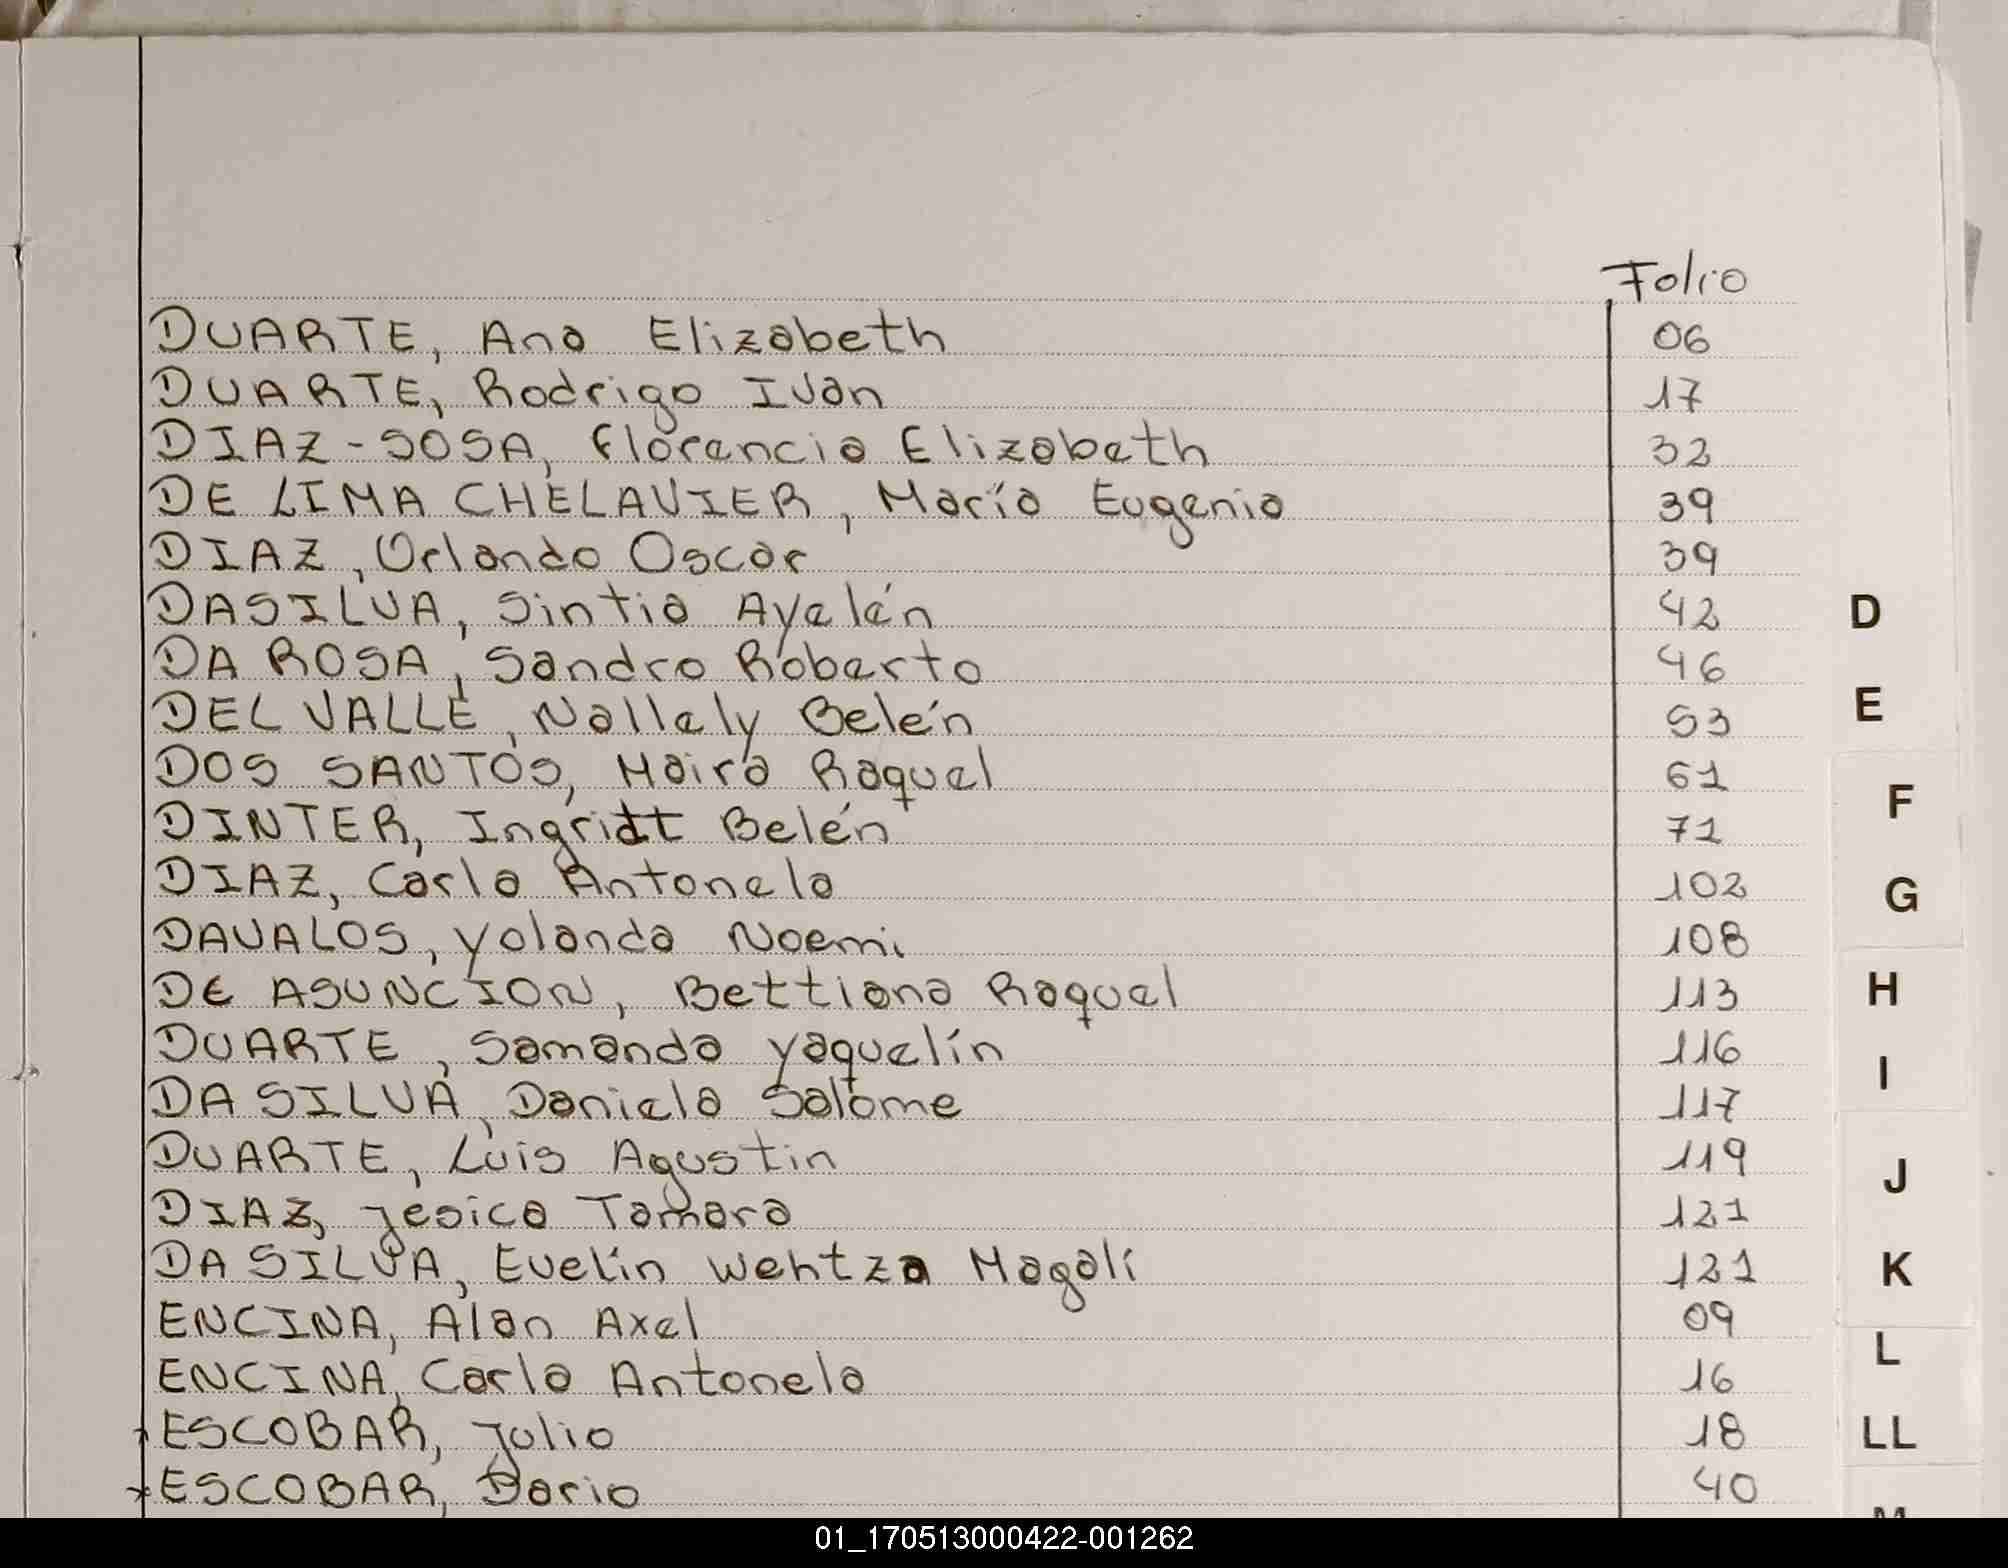 Folio
DUARTE, Ana Elizabeth 06
DUARTE, Rodrigo Ivan 17
DIAZ-SOSA, Florencia Elizabeth 32
DE LIMA CHELAVIER, María Eugenia 39
DIAZ, Orlando Oscar 39
DASILVA, Sintia Ayelén 42
D
DA ROSA, Sandro Roberto 46
E
DEL VALLE, Nallely Belén 53
DOS SANTOS, Maira Raquel 61
F
DINTER, Ingridt Belén 71
DIAZ, Carla Antonela 102
G
DAVALOS, Yolanda Noemi 108
DE ASUNCION, Bettiana Raquel 113
H
DUARTE, Samanda Yaquelín 116
I
DA SILVA, Daniela Salome 117
DUARTE, Luis Agustin 119
J
DIAZ, Jesica Tamara 121
DA SILVA, Evelín Wehtza Magalí 121
K
ENCINA, Alan Axel 09
L
ENCINA, Carla Antonela 16
ESCOBAR, Julio 18
LL
ESCOBAR, Dario 40
M
01_170513000422-001262